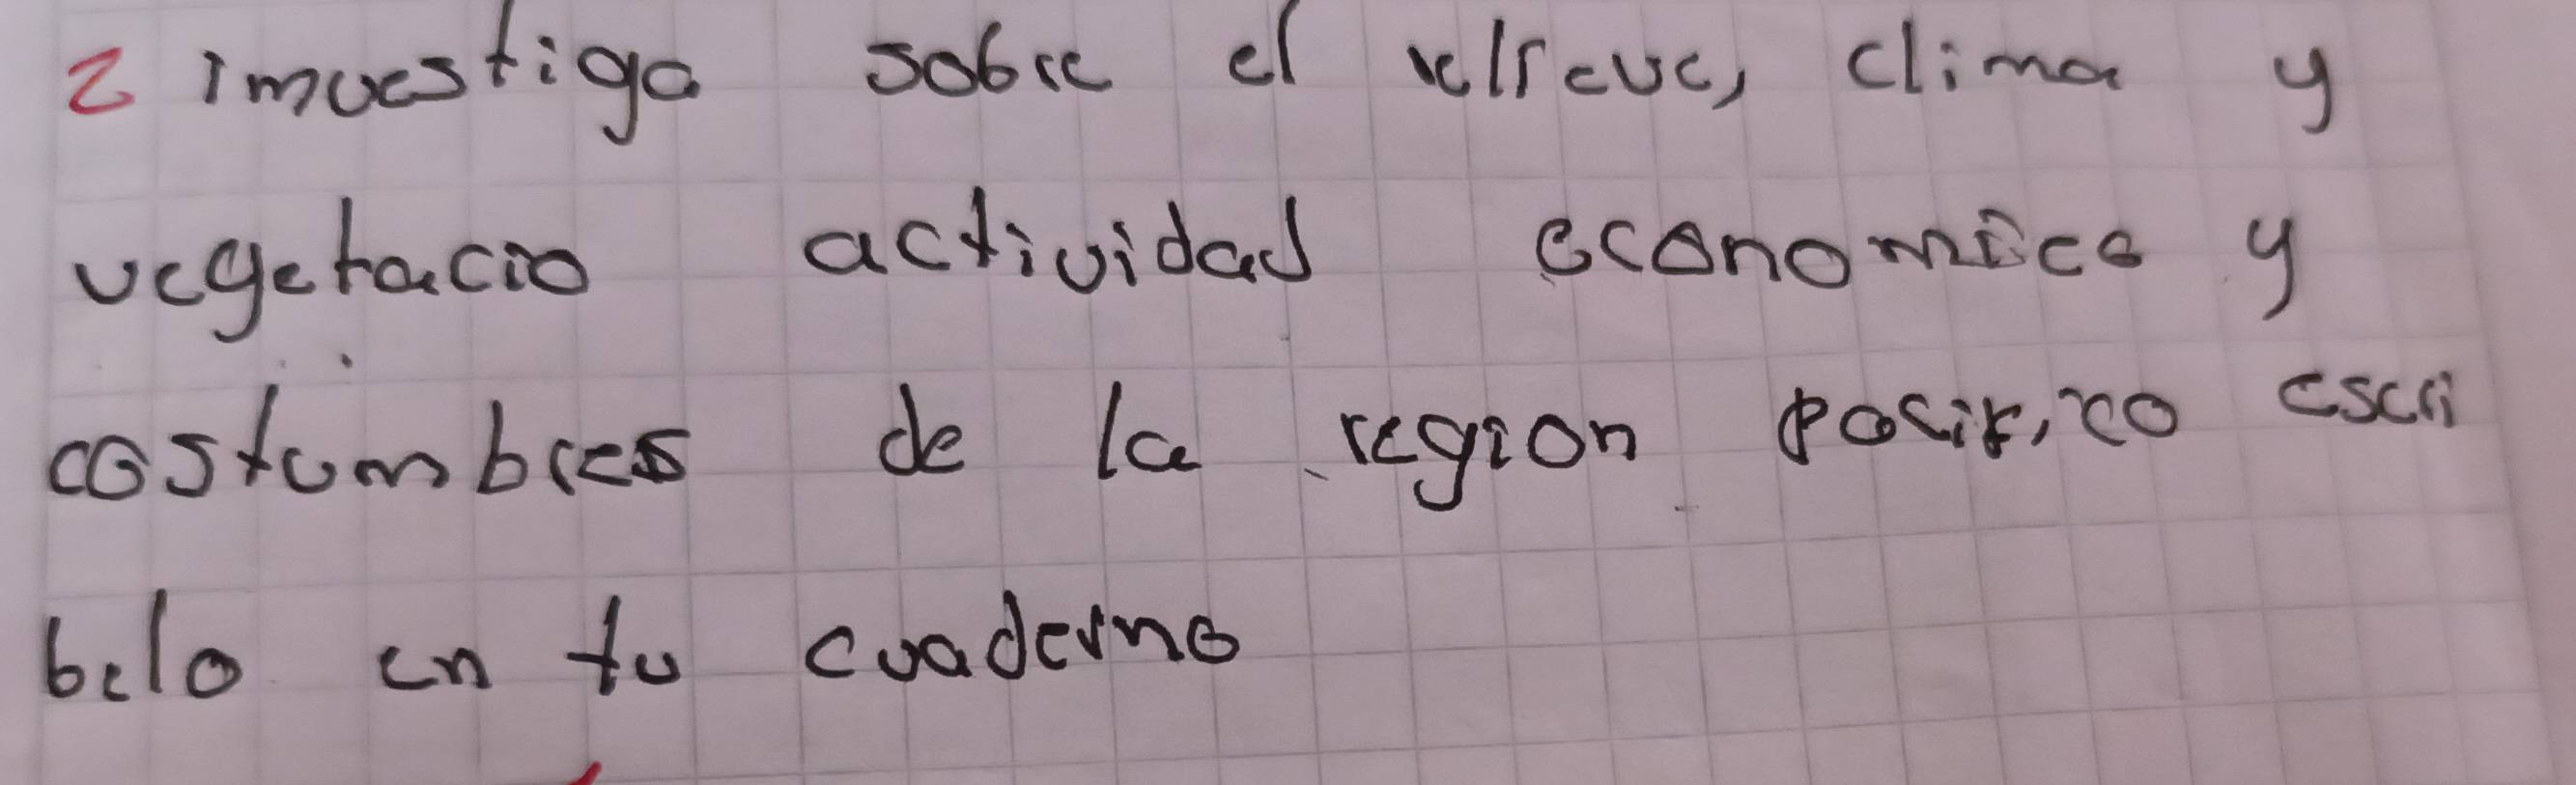 2 imvestiga sobre el relieve, clima y
vegetacio actividad economica y
costumbres de la region pacifico escri
belo en tu cuaderno